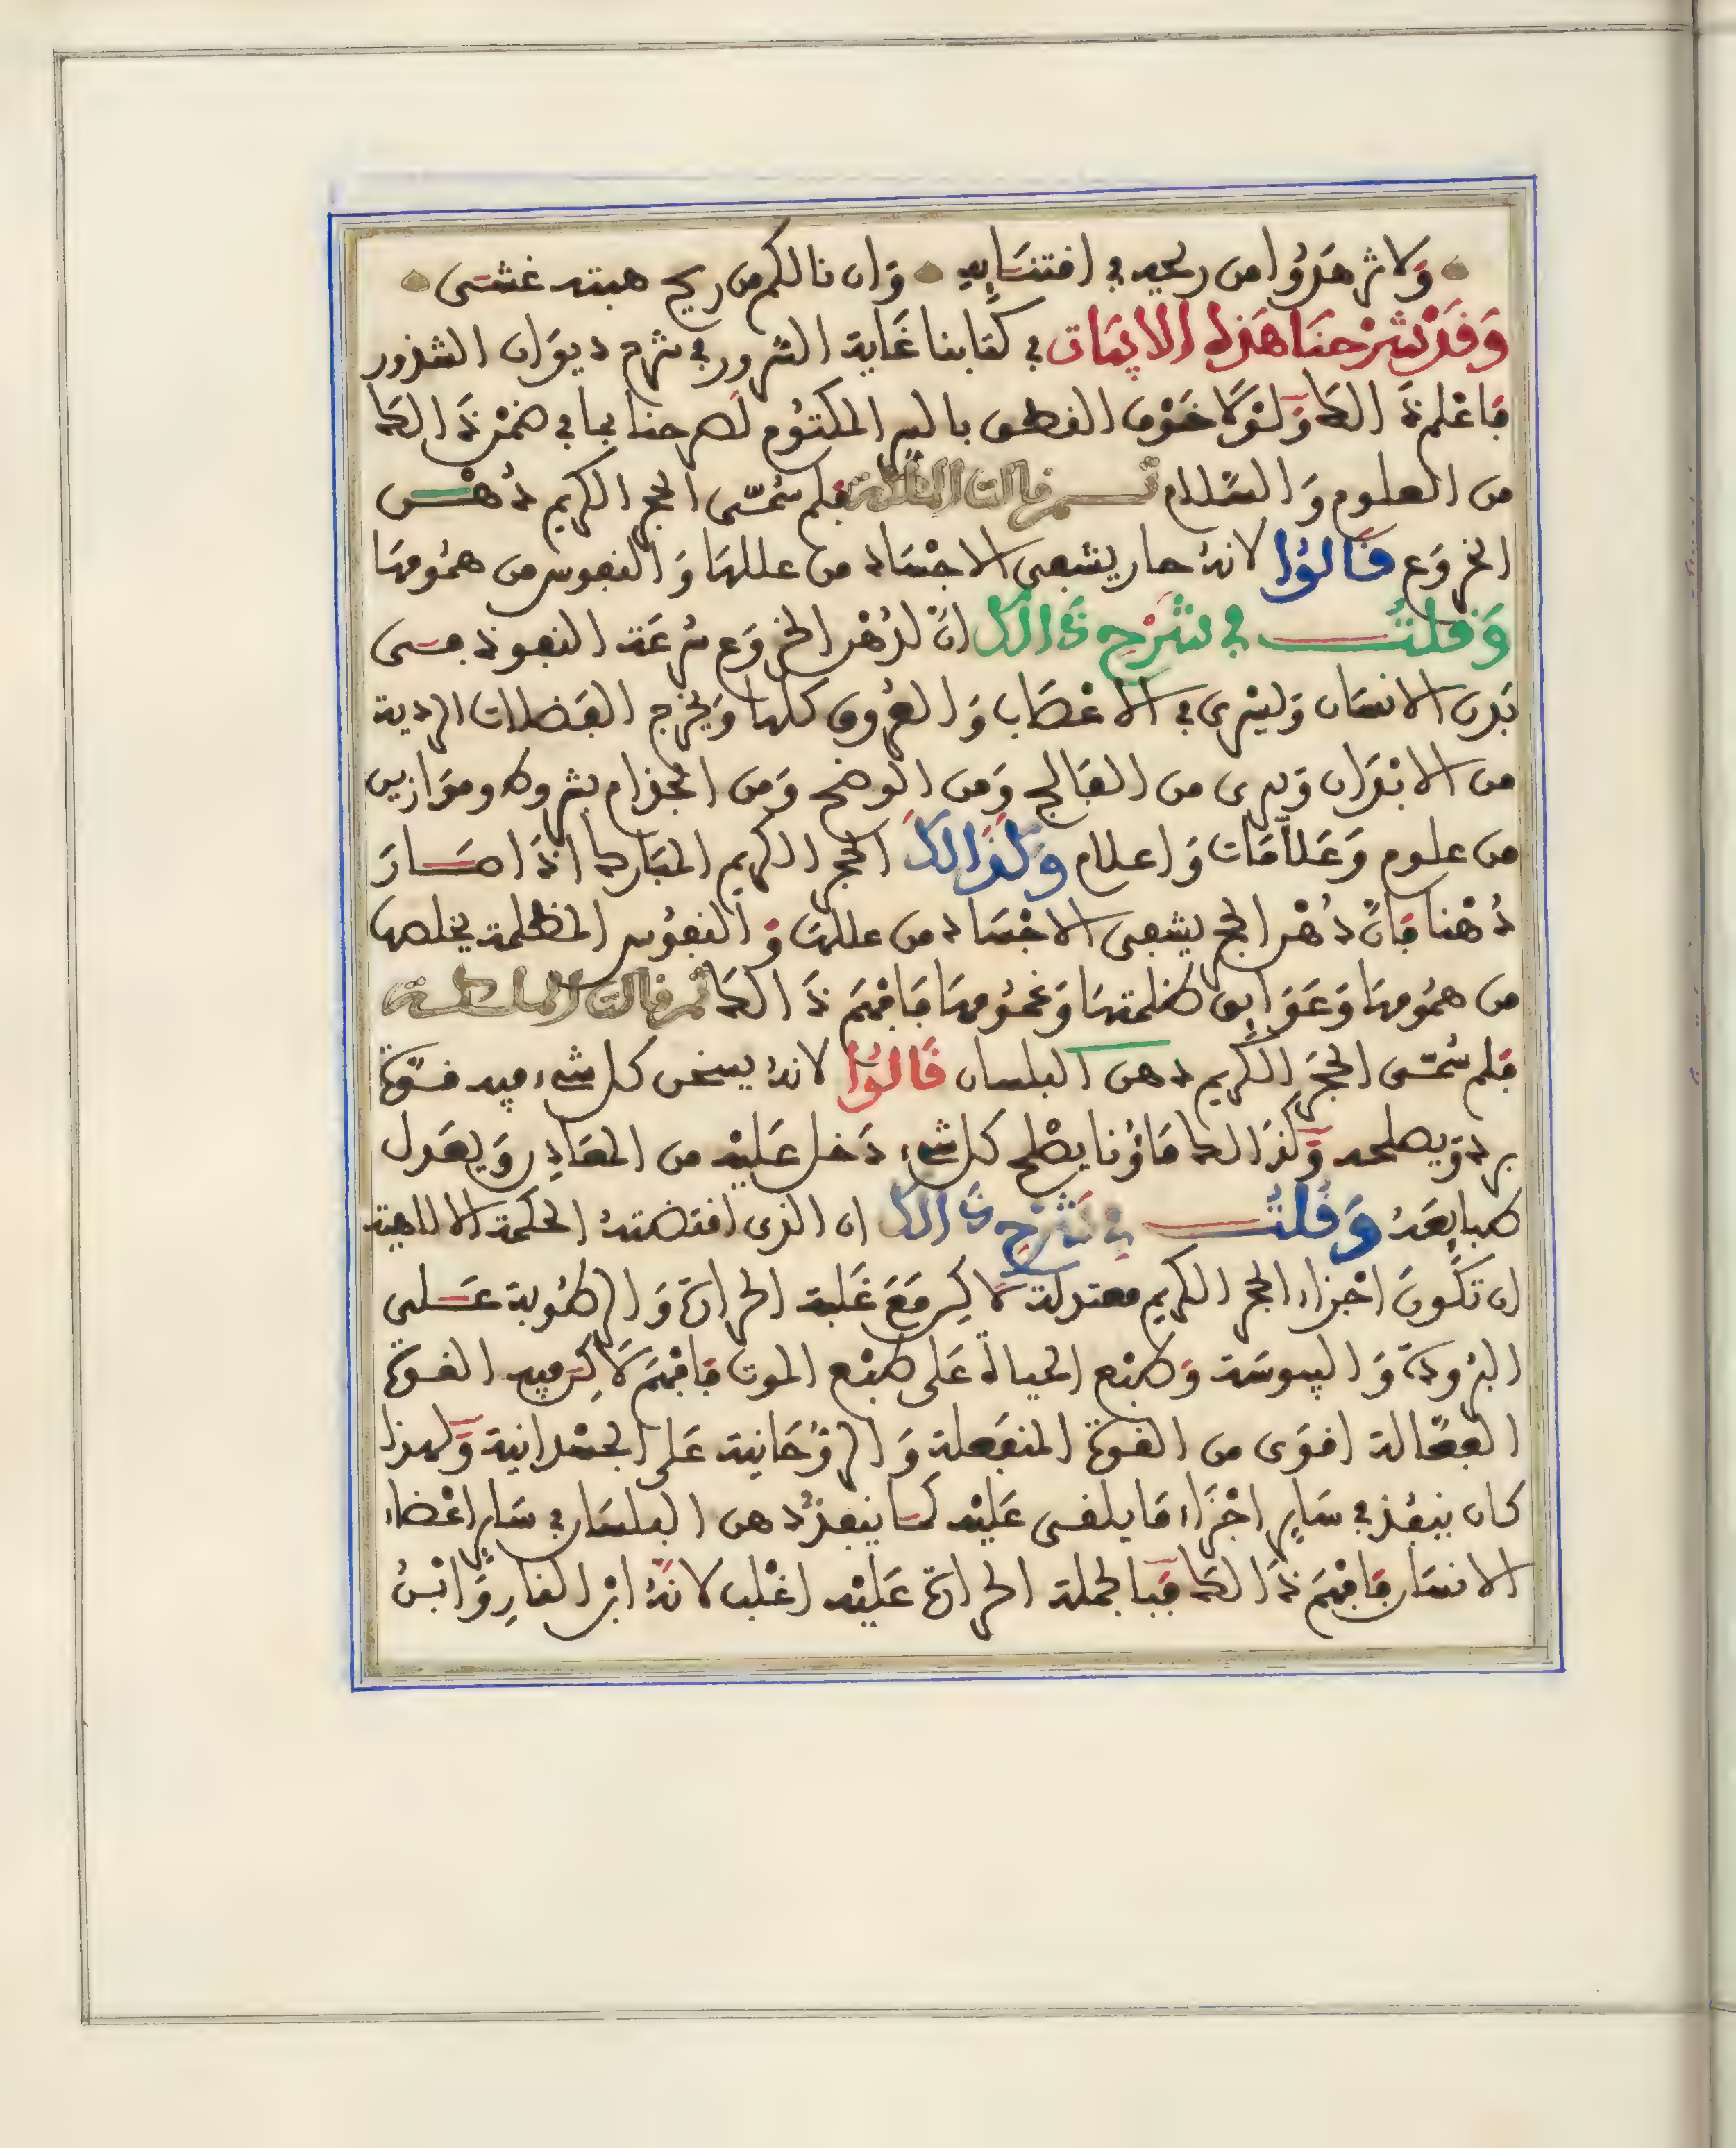 وَلا تزهَدُوا من ريحه في اقتنَايِه وَان نالكم من ريح هبته غشى
وَقَدْ شَرَحنَا هَذِه الابيَات في كتابنا غَاية السُّرور في شرح ديوَان الشذور
فاعْلم ذَالك وَلَوْلَا خَوْف النطق بالسر المكتوُم لصرحنا بما في ضمْن ذَالك
من العلوم وَالسَّلام ثــم قالت الملكة فلم سُمّى الحجر الكريم دُهْــن
الخروَع قَالوُا لانهُ حار يشفى الاجْسَاد من عللهَا وَالنفوس من همُومهَا
وَقلتُ في شَرْحِ ذَالك انّ لدُهْن الخروَع سُرعَة النفوذ فــى
بَدن الانسَان وَيسْرى في الاعْصَاب وَالعُروق كلها وَيخرج الفَضلات الردية
من الابْدَان وَيبرى من الفَالج وَمن الوضح وَمن الجذام بشروط وموَازين
من علوم وَعَلاَمَات وَاعلام وَكَذَالكَ الحجر الكريم المبَارك اذَا صَــارَ
دُهْنا فَانّ دُهْن الحجر يشفى الاجْسَاد من عللهَا وَالنفوُس المظلمة يخلصهَا
من همُومهَا وَعَوَايق ظلمتهَا وَغمُومهَا فَافهَم ذَالك ثم قالت الملكــة
فلم سُمّى الحجَر الكريم دهن البلسان قَالوُا لانهُ يسخن كل شىء فيه قــوّة
برد وَيصلحه وَكذَالك مَاؤُنا يصْلح كل شىء دَخل عَليْه من المعَادِن وَيعَدل
طبايعَهُ وَقُلتُ في شَرْحِ ذَالك ان الذى اقتضتهُ الحكمة الالاهية
ان تكُونَ اجْزاء الحجر الكريم معتدلة لَاكِن مَعَ غَلبة الحرارة وَالرطُوبة عَــلى
البرُودة وَاليبوسَة وَطبْع الحياة عَلى طبْع الموت فَافْهَم لَاكِن فيه القــوة
الفعّالة اقوَى من القوة المنفَعلة وَالروُّحَانية عَلى الجسْدانية وَلهذا
كان ينفُذ في سَايِر اجْزَاء مَا يلقى عَليْه كمَا ينفذ دُهن البلسَان في سَايِر اعْضاء
الانسَان فَافْهَم ذَالك فَبالجملة الحرارة عَليْه اغْلب لانهُ ابْن النارِ وَابْنُ